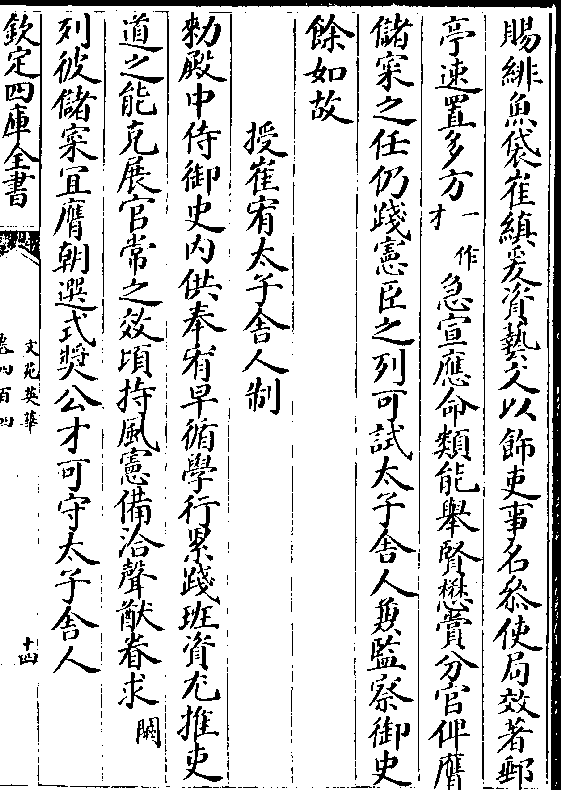 賜緋魚袋崔縝爰資藝文以飾吏事名叅使局效著郵
亭速置多方一作才急宣應命類能舉賢懋賞分官俾膺
儲寀之任仍踐憲臣之列可試太子舍人兼監察御史
餘如故
授崔宥太子舍人制
勑殿中侍御史内供奉宥早循學行累踐班資尤推吏
道之能克展官常之效頃持風憲備洽聲猷眷求闕
列彼儲寀冝膺朝選式奬公才可守太子舍人
欽定四庫全書
文苑英華
卷四百四
十四